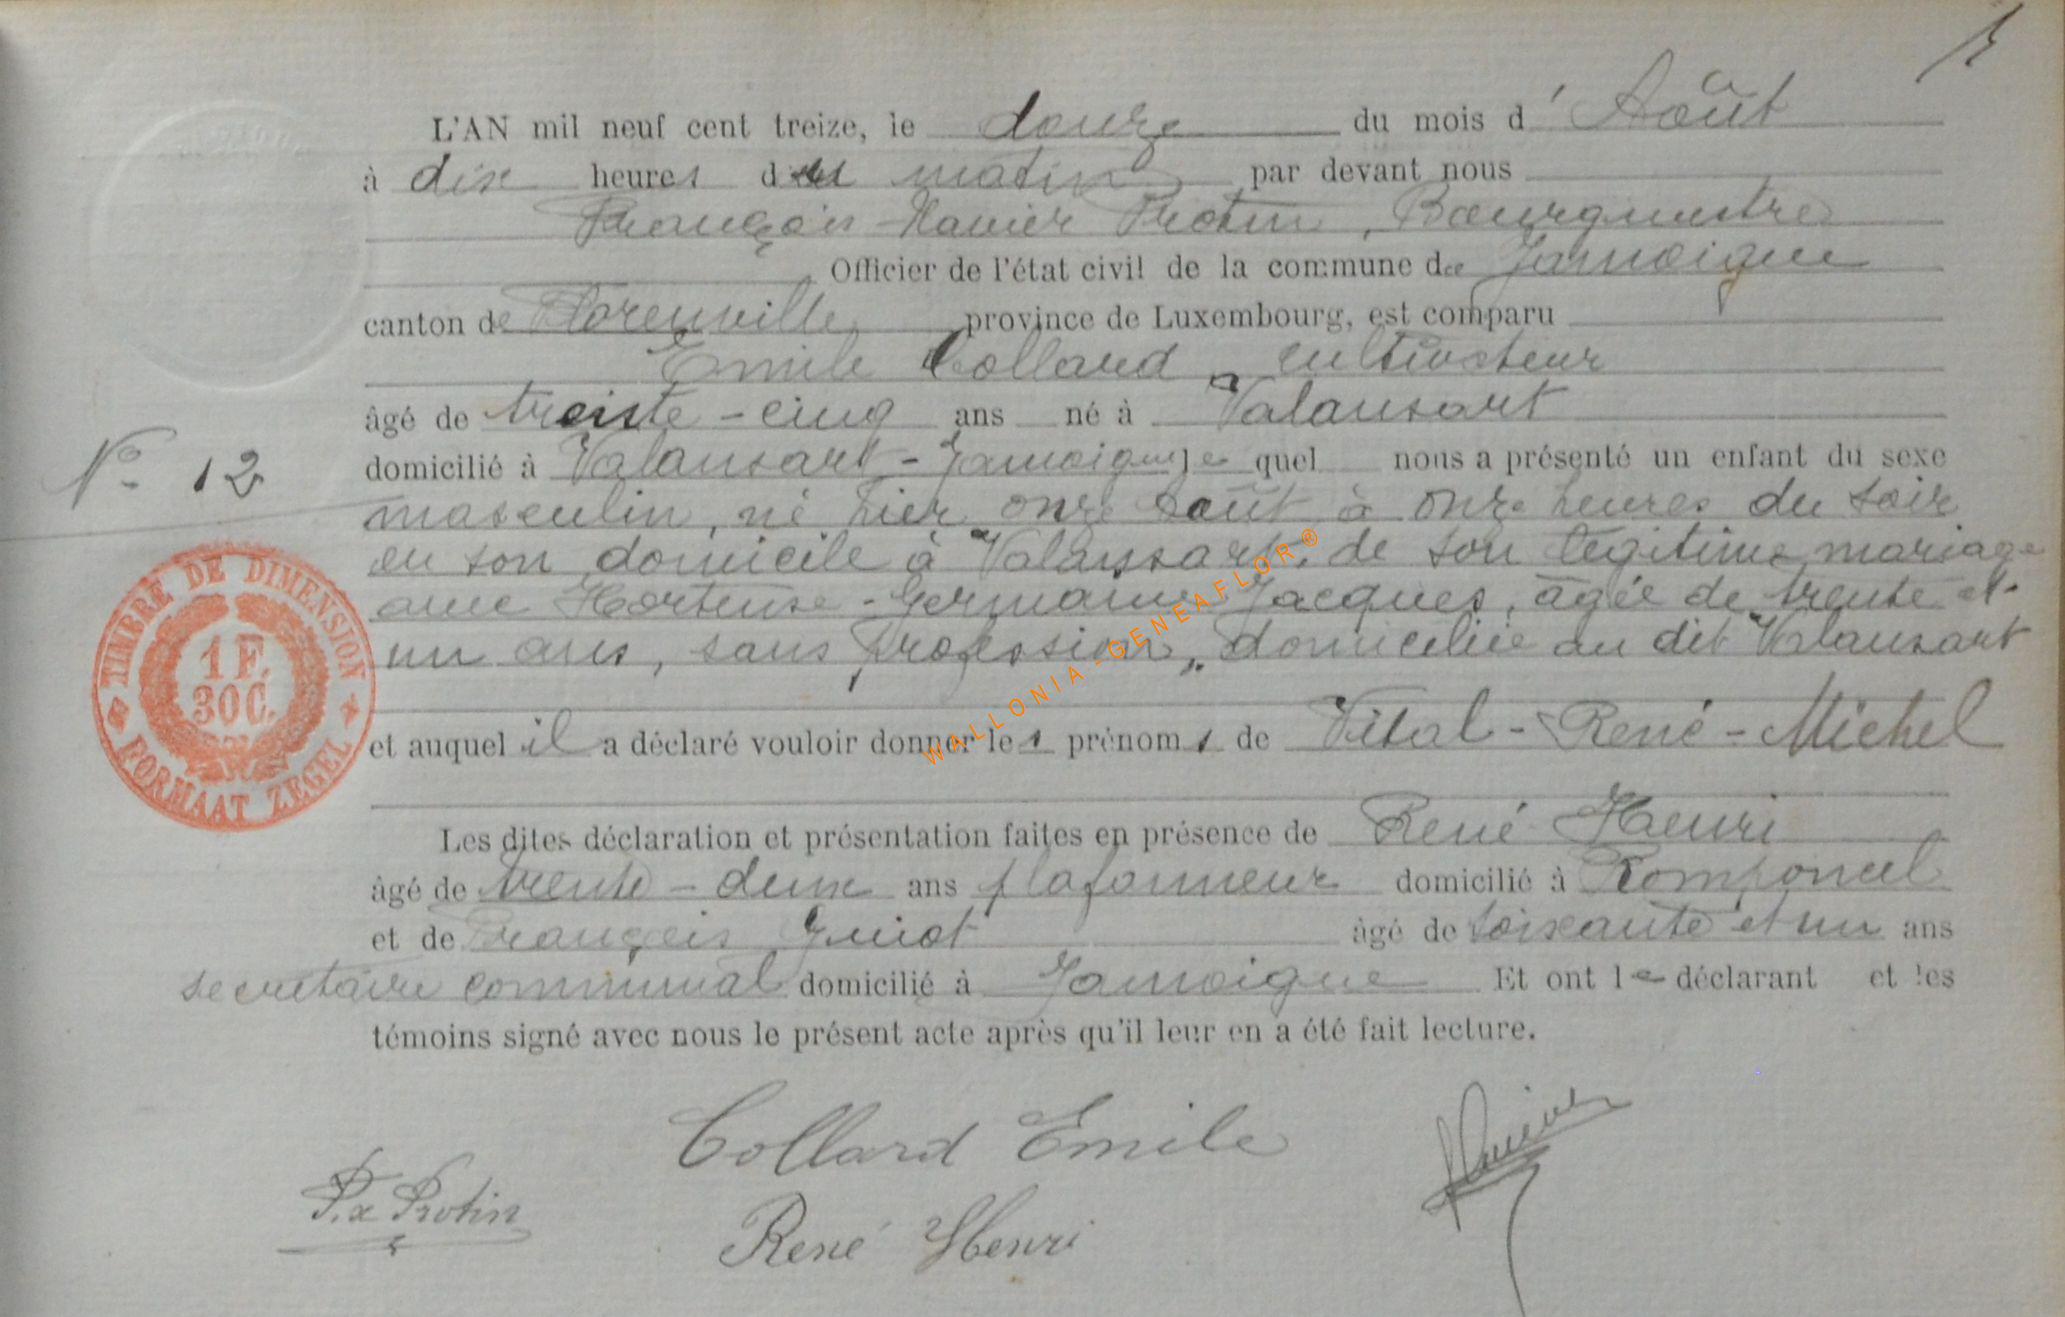 L'AN mil neuf cent treize, le douze du mois d'Août
à dix heures du matin par devant nous
François-Xavier Protin, Bourgmestre
Officier de l'état civil de la commune de Jamoigne
canton de Florenville province de Luxembourg, est comparu
Emile Collard, cultivateur
âgé de trente-cinq ans né à Valansart
N° 12
domicilié à Valansart-Jamoigne, lequel nous a présenté un enfant du sexe
masculin, né hier onze août à onze heures du soir
en son domicile à Valansart, de son légitime mariage
avec Hortense-Germaine Jacques, âgée de trente et
un ans, sans profession, domiciliée au dit Valansart
et auquel il a déclaré vouloir donner les prénoms de Vital-René-Michel
Les dites déclaration et présentation faites en présence de René Henri
âgé de trente-deux ans plafonneur domicilié à Romponcel
et de François Guiot âgé de soixante et un ans
secrétaire communal domicilié à Jamoigne Et ont le déclarant et les
témoins signé avec nous le présent acte après qu'il leur en a été fait lecture.
Collard Emile
F.x Protin
René Henri
TIMBRE DE DIMENSION
1 F.
30 C.
FORMAAT ZEGEL
WALLONIA-GENEAFLOR®